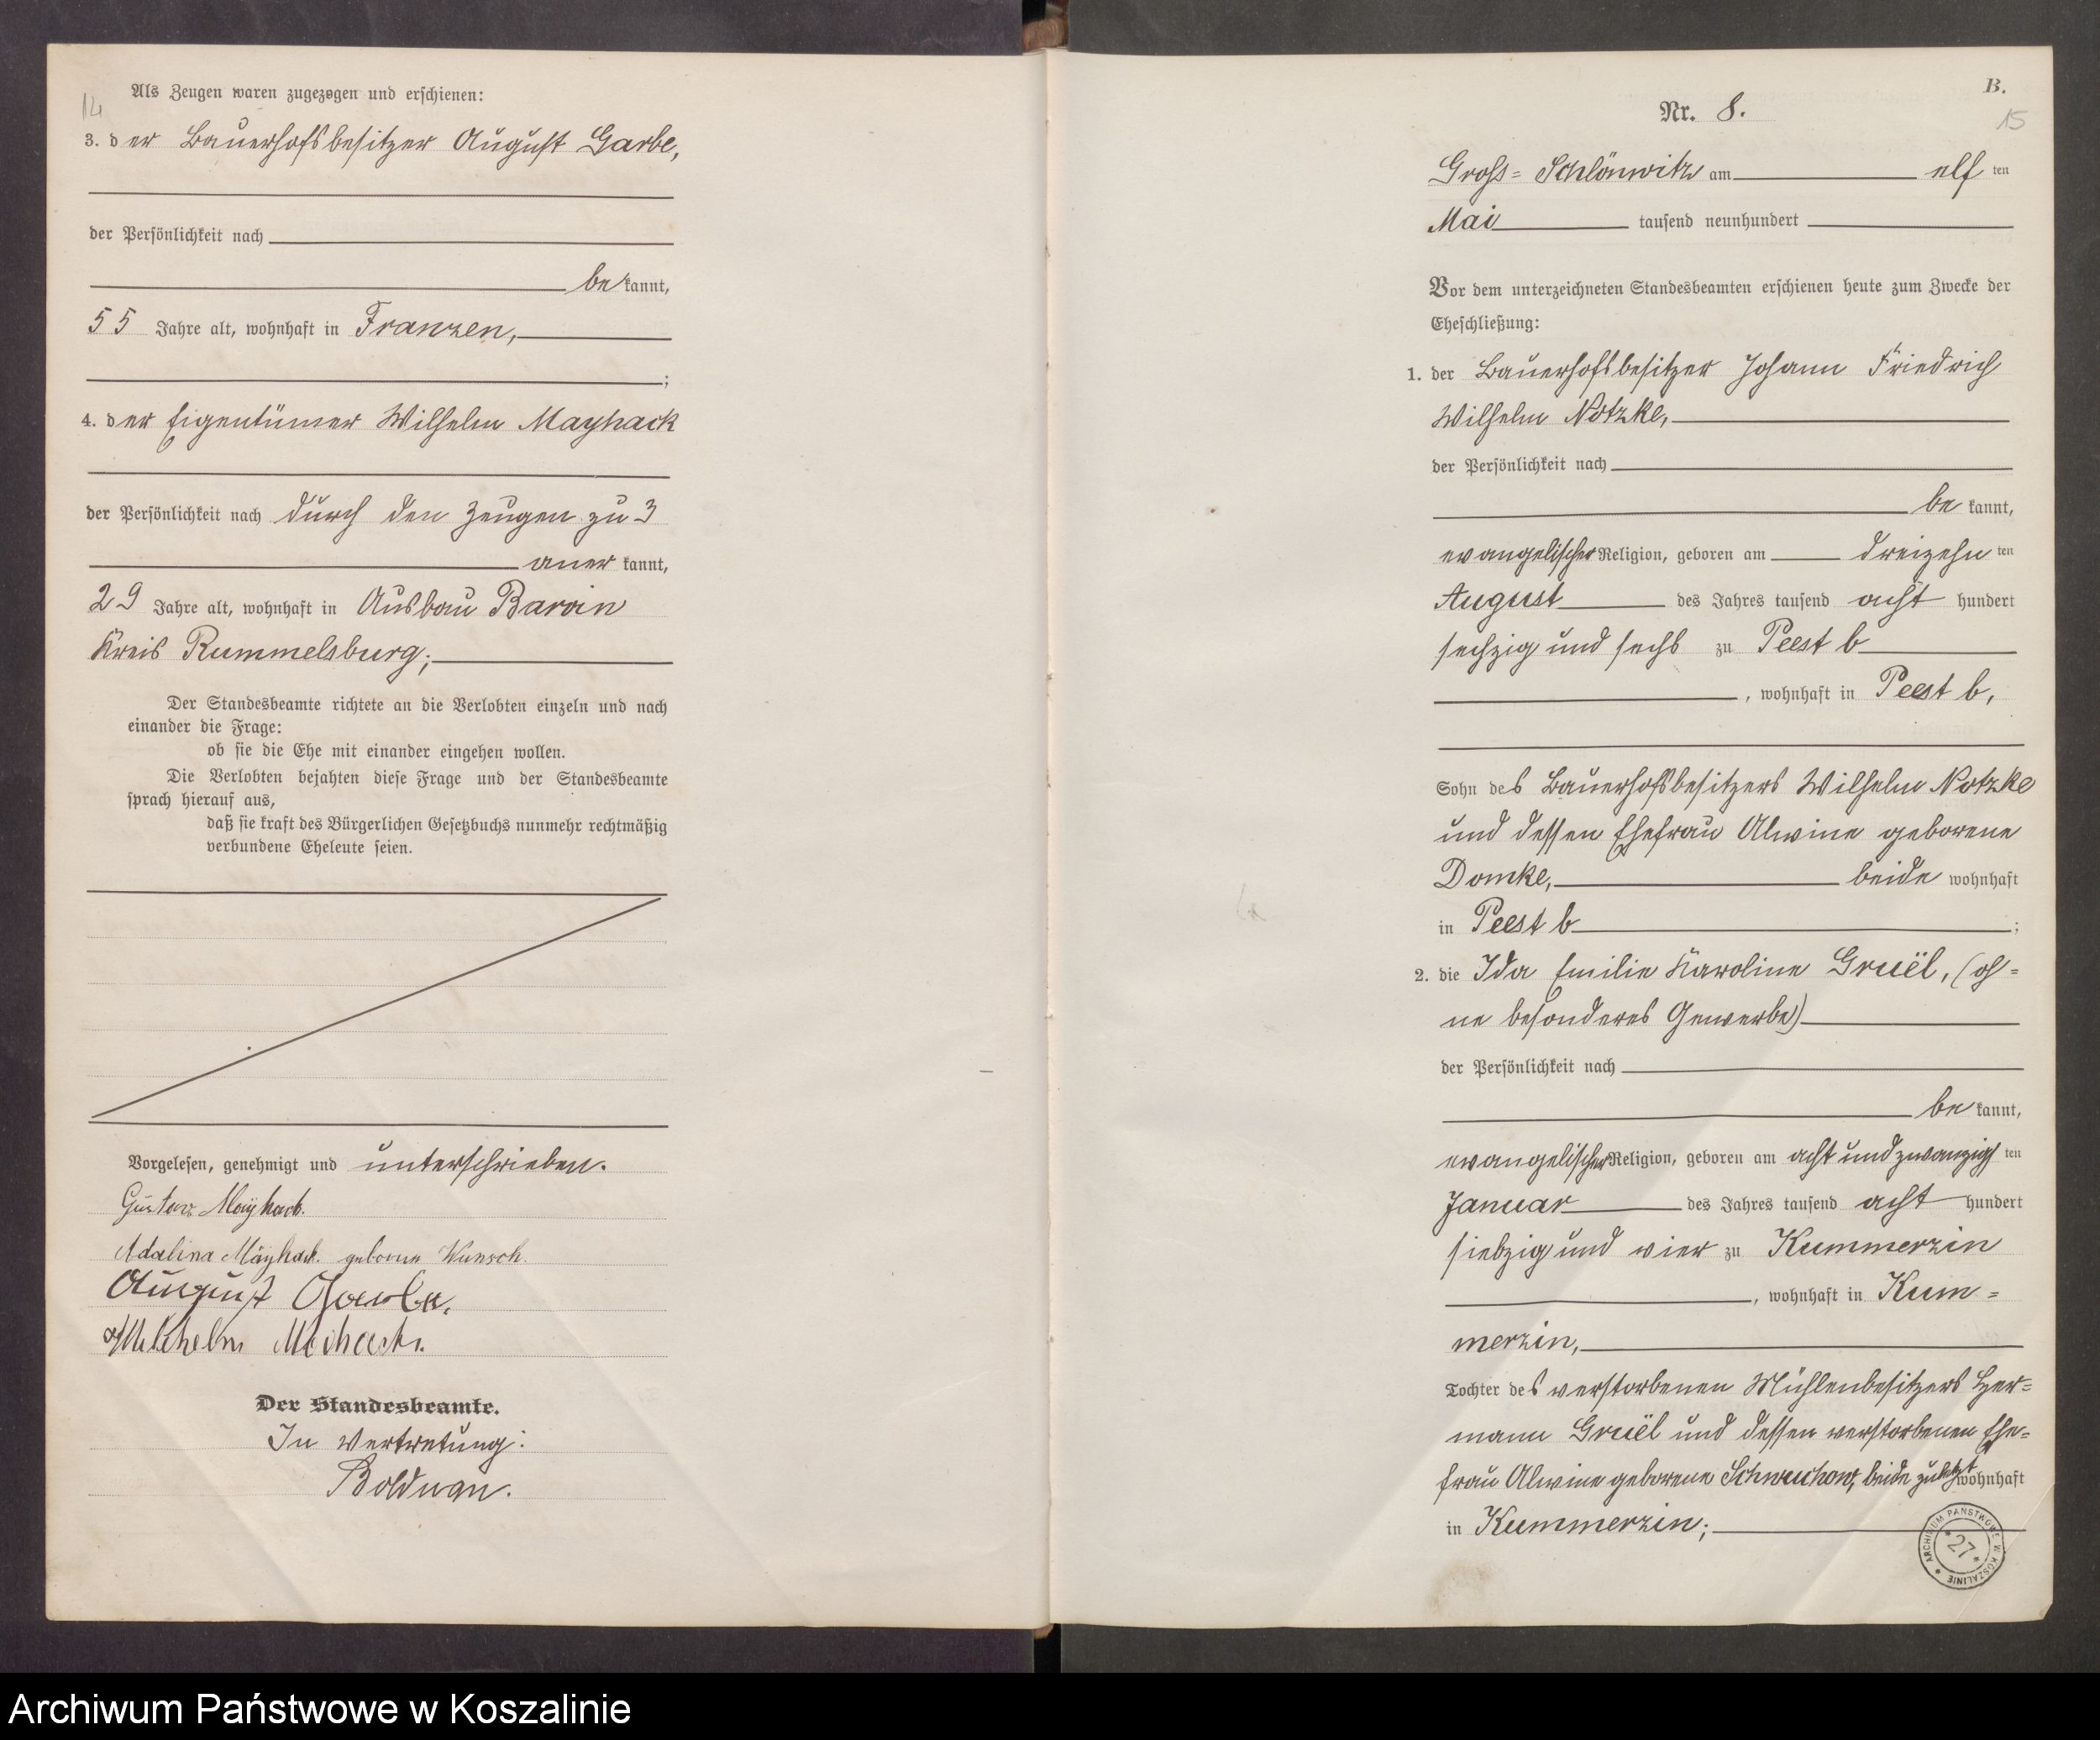 14
Als Zeugen waren zugezogen und erschienen:
3. der Bauerhofsbesitzer August Garbe,
der Persönlichkeit nach
bekannt,
55 Jahre alt, wohnhaft in Franzen,
;
4. der Eigentümer Wilhelm Mayhack
der Persönlichkeit nach durch den Zeugen zu 3
anerkannt,
29 Jahre alt, wohnhaft in Ausbau Barvin
Kreis Rummelsburg;
Der Standesbeamte richtete an die Verlobten einzeln und nach
einander die Frage:
ob sie die Ehe mit einander eingehen wollen.
Die Verlobten bejahten diese Frage und der Standesbeamte
sprach hierauf aus,
daß sie kraft des Bürgerlichen Gesetzbuchs nunmehr rechtmäßig
verbundene Eheleute seien.
Vorgelesen, genehmigt und unterschrieben.
Gustav Mayhack.
Adalina Mayhack. geborne Wunsch.
August Garbe.
Wilhelm
Der Standesbeamte.
In Vertretung:
Boldwan.
B.
15
Nr. 8.
Gross=Schlönwitz am elf ten
Mai tausend neunhundert
Vor dem unterzeichneten Standesbeamten erschienen heute zum Zwecke der
Eheschließung:
1. der Bauerhofsbesitzer Johann Friedrich
Wilhelm Notzke,
der Persönlichkeit nach
bekannt,
evangelischer Religion, geboren am dreizehn ten
August des Jahres tausend acht hundert
sechzig und sechs zu Peest b
, wohnhaft in Peest b,
Sohn des Bauerhofsbesitzers Wilhelm Notzke
und dessen Ehefrau Alwine geborene
Domke, beide wohnhaft
in Peest b ;
2. die Ida Emilie Karoline Gruël, (oh=
ne besonderes Gewerbe)
der Persönlichkeit nach
bekannt,
evangelischer Religion, geboren am acht und zwanzig ten
Januar des Jahres tausend acht hundert
siebzig und vier zu Kummerzin
, wohnhaft in Kum=
merzin,
Tochter des verstorbenen Mühlenbesitzers Her=
mann Gruël und dessen verstorbenen Ehe=
frau Alwine geborene Schwuchow, beide zuletzt wohnhaft
in Kummerzin;
ARCHIWUM PAŃSTWOWE W KOSZALINIE * 27 *
Archiwum Państwowe w Koszalinie